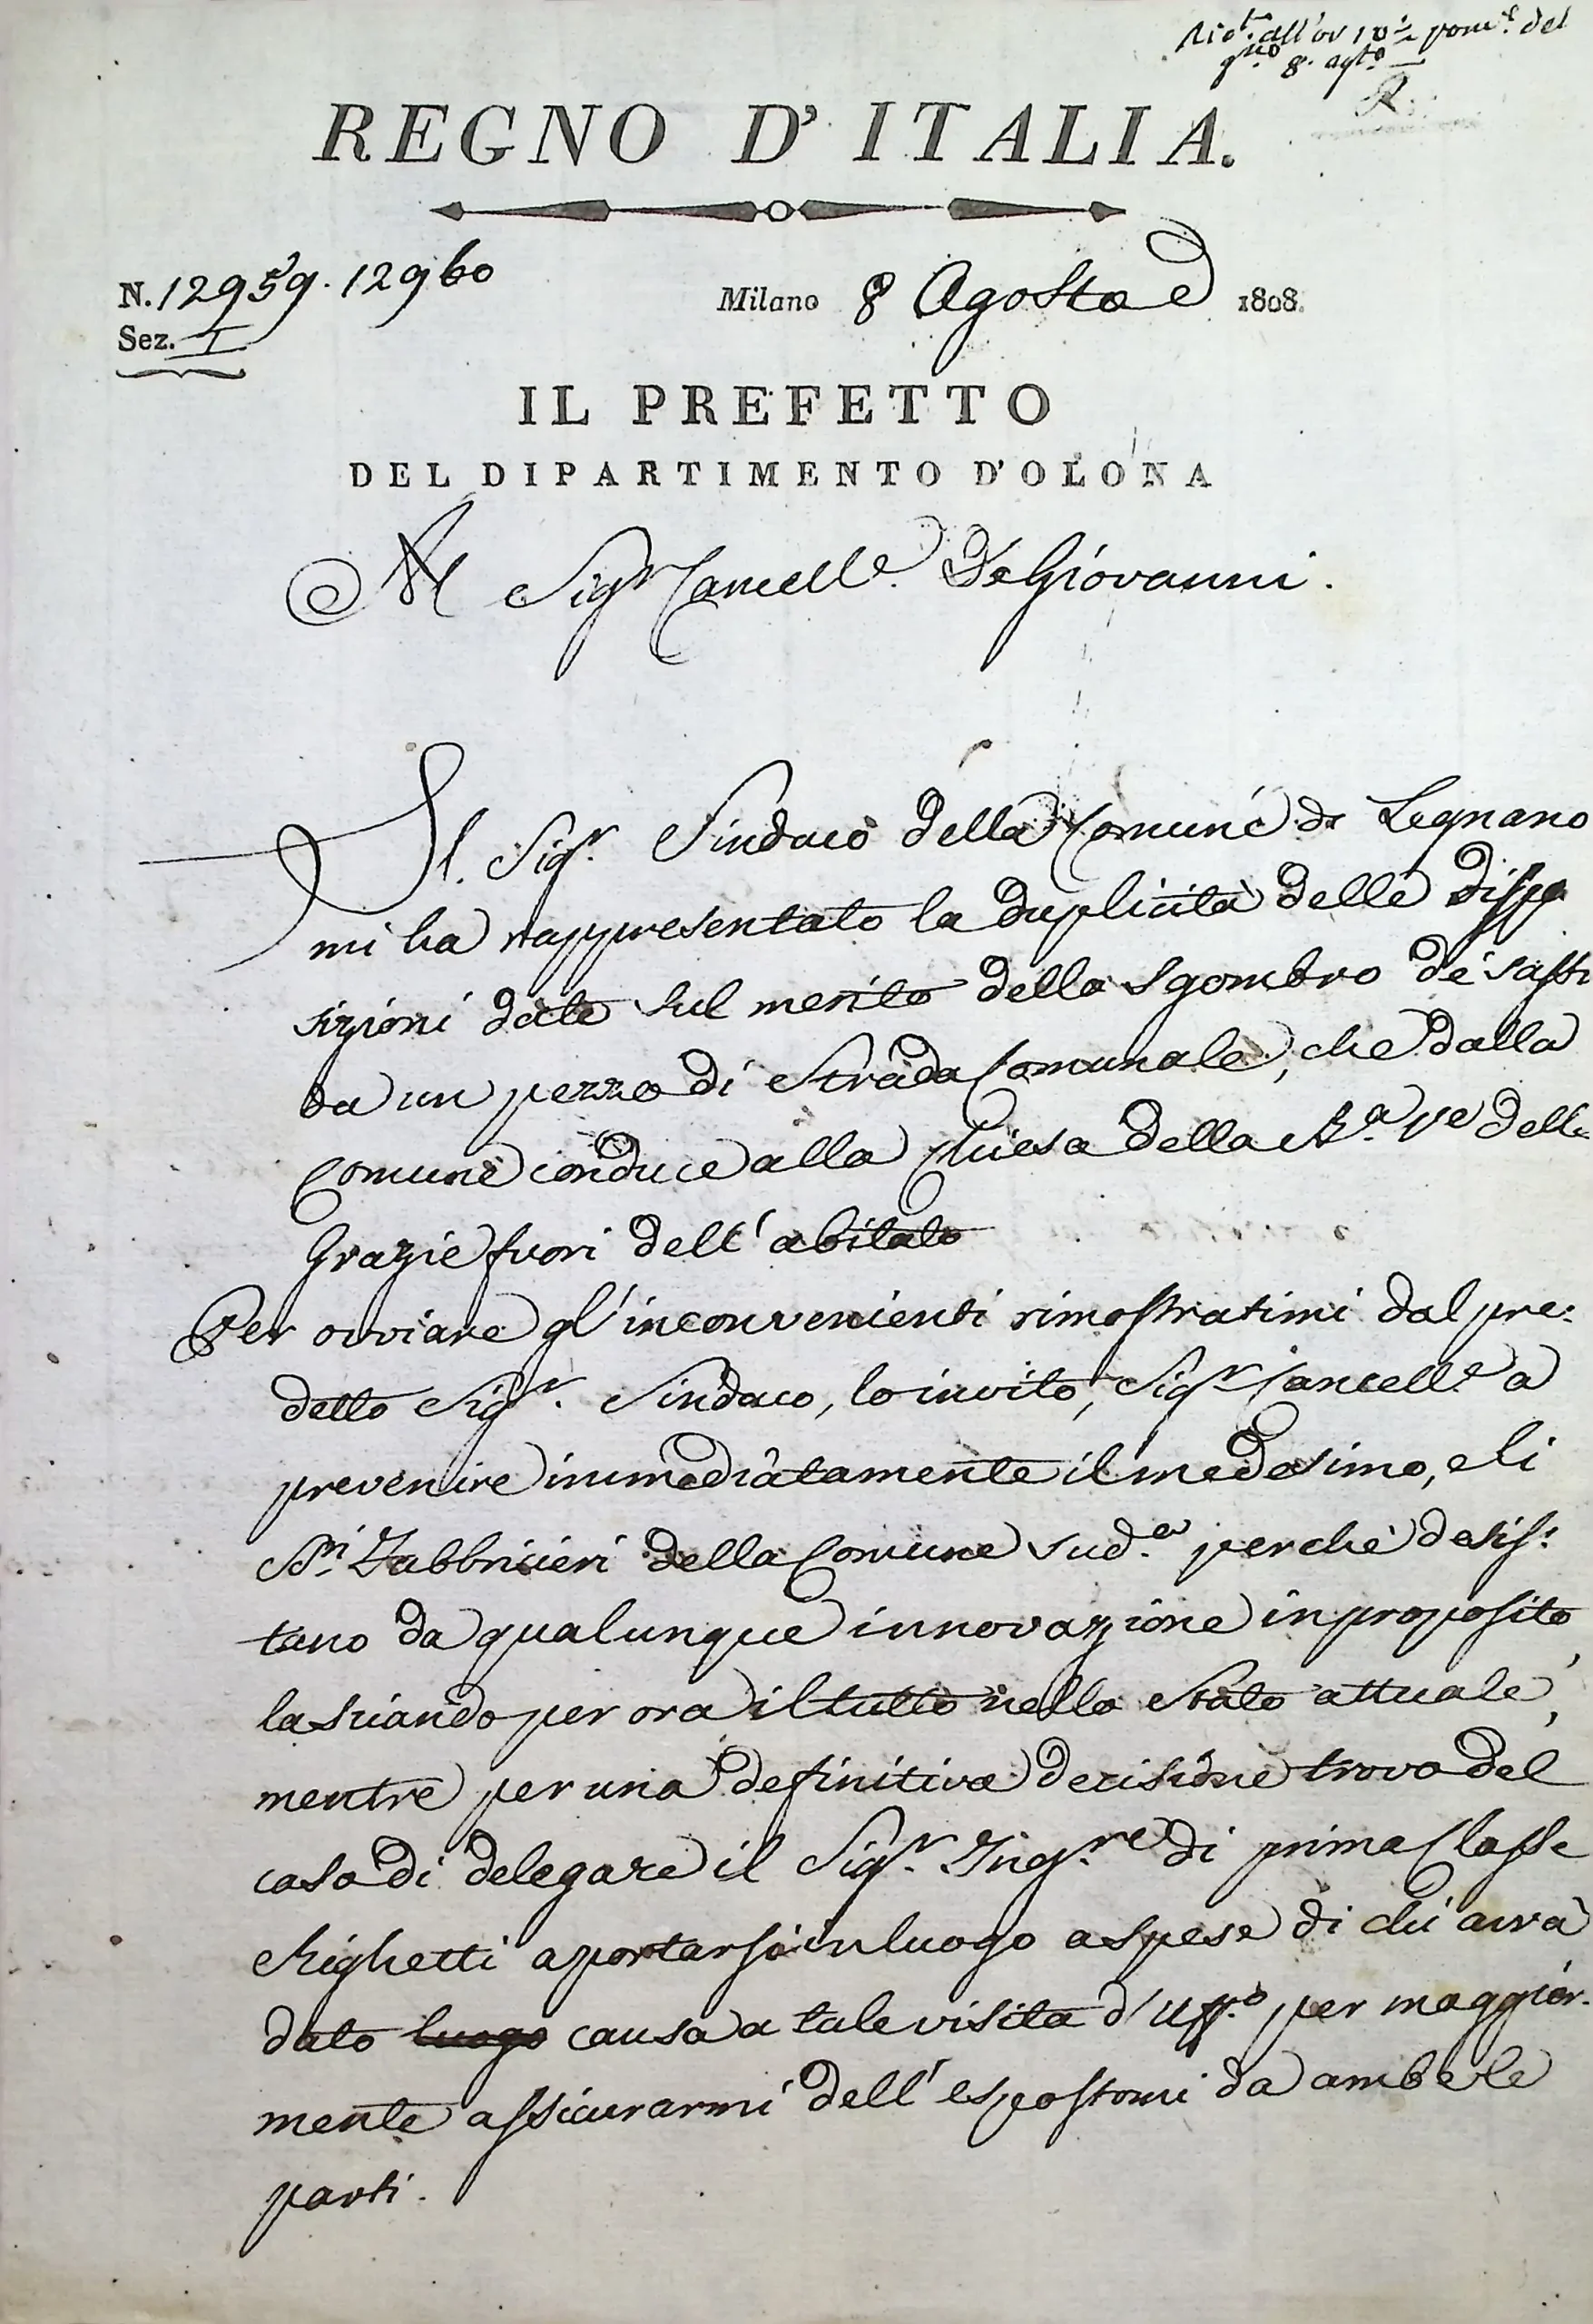 all'or 10½ pom.e del
g.no 8. ag.to
REGNO D'ITALIA.
N. 12959. 12960
Milano 8 Agosto 1808.
Sez. I
IL PREFETTO
DEL DIPARTIMENTO D'OLONA
Al Sig.r Cancell.e DeGiovanni.
Il Sig.r Sindaco della Comune di Legnano
mi ha rappresentato la duplicità delle dispo
sizioni date sul merito dello sgombro de' sassi
da un pezzo di Strada Comunale, che dalla
Comune conduce alla Chiesa della B.a V.e delle
Grazie fuori dell'abitato
Per ovviare gl'inconvenienti rimostratimi dal pre:
detto Sig.r Sindaco, lo invito, Sig.r Cancell.e a
prevenire immediatamente il medesimo, e li
S.ri Fabbricieri della Comune sud.a perchè desis:
tano da qualunque innovazione in proposito,
lasciando per ora il tutto nello stato attuale,
mentre per una definitiva decisione trovo del
caso di delegare il Sig.r Ing.re di prima Classe
Righetti a portarsi in luogo a spese di chi avrà
dato luogo causa a tale visita d'Uff.o per maggior.
mente assicurarmi dell'espostomi da ambe le
parti.